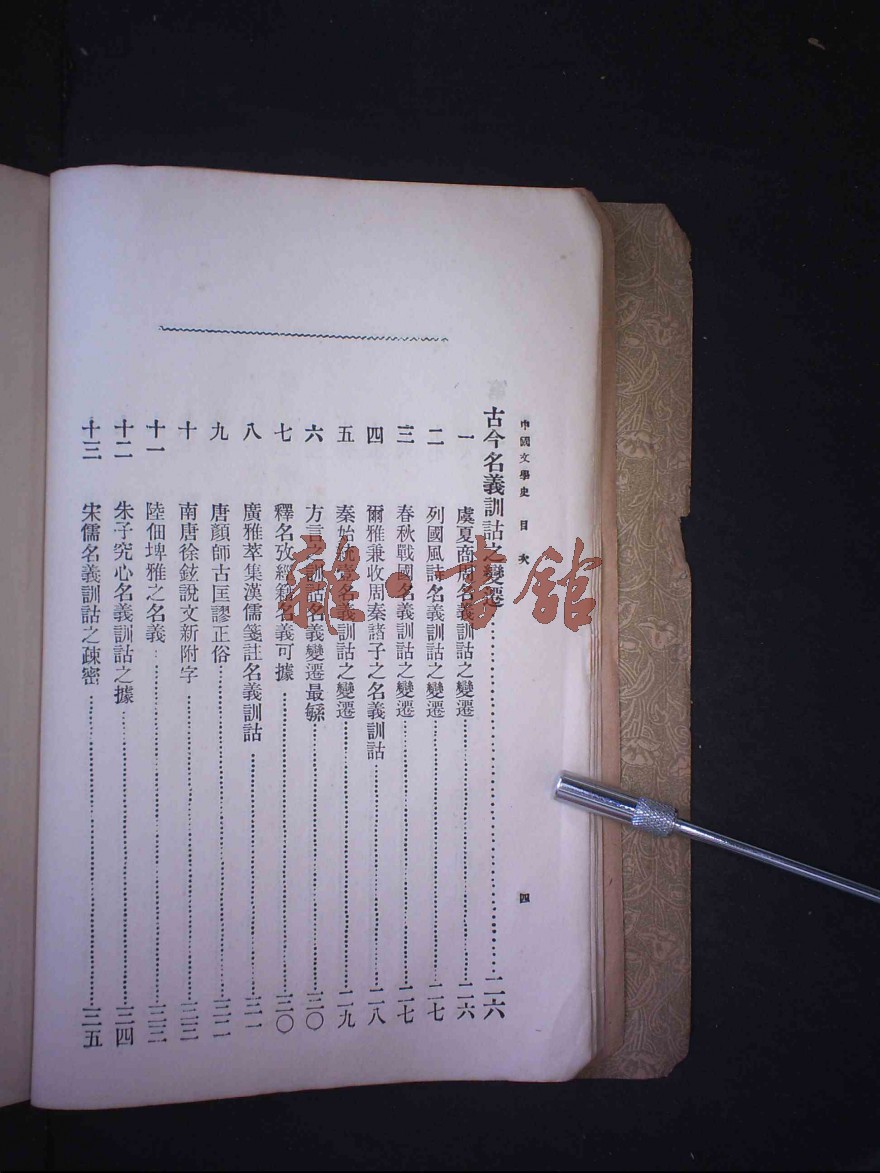 中國文學史 目次
四
古今名義訓詁之變遷……二六
一 虞夏商周名義訓詁之變遷……二六
二 列國風詩名義訓詁之變遷……二七
三 春秋戰國名義訓詁之變遷……二七
四 爾雅兼收周秦諸子之名義訓詁……二八
五 秦始統壹名義訓詁之變遷……二九
六 方言之訓詁名義變遷最繇……三〇
七 釋名攷經籍名義可據……三〇
八 廣雅萃集漢儒箋註名義訓詁……三一
九 唐顏師古匡謬正俗……三二
十 南唐徐鉉說文新附字……三三
十一 陸佃埤雅之名義……三三
十二 朱子究心名義訓詁之據……三四
十三 宋儒名義訓詁之疎密……三五
雜·書館